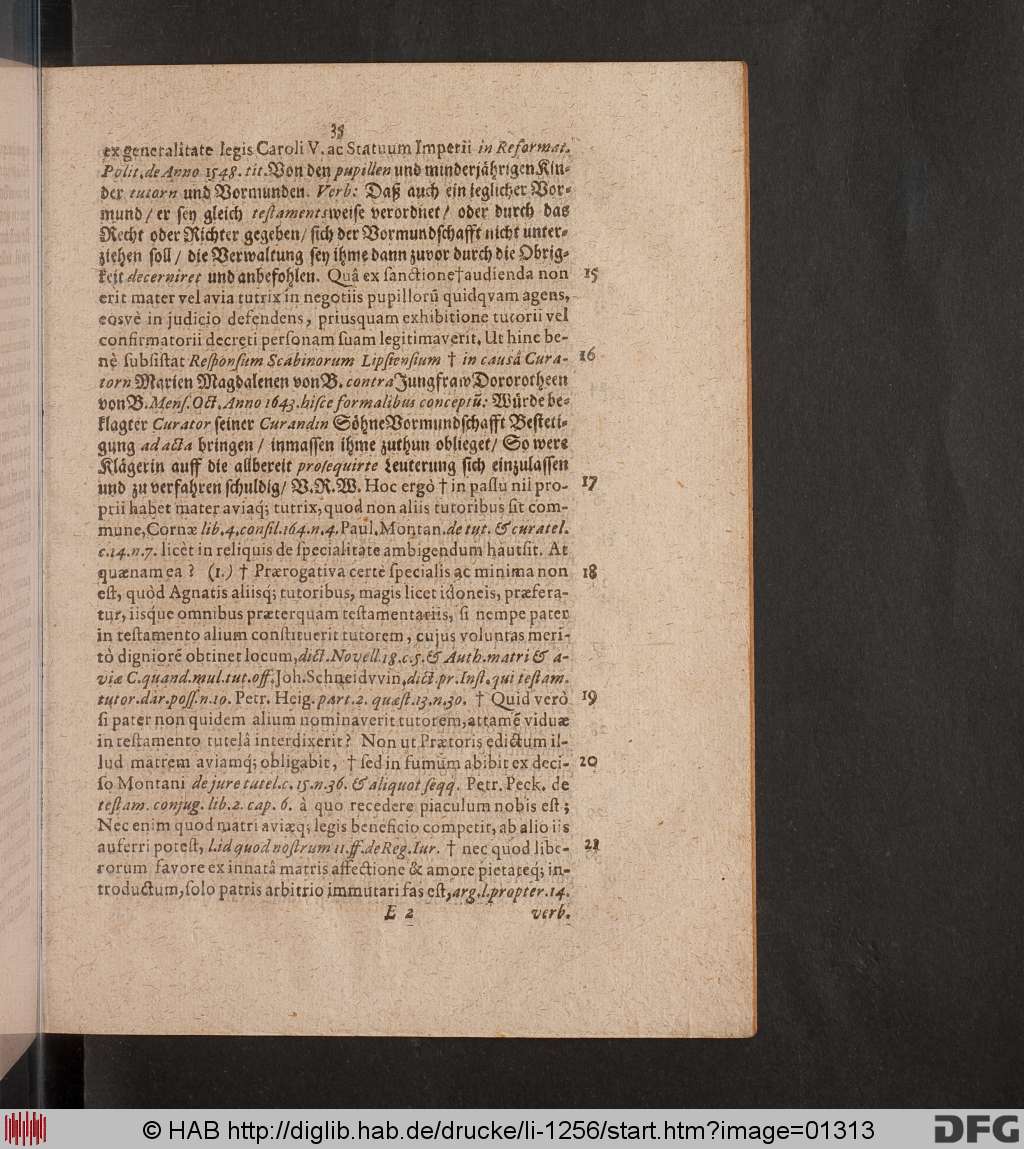 35
ex generalitate legis Caroli V. ac Statuum Imperii in Reformat.
Polit. de Anno 1548. tit. Von den pupillen und minderjährigen Kin-
der tutorn und Vormunden. Verb: Daß auch ein ieglicher Vor-
mund / er sey gleich testamentsweise verordnet / oder durch das
Recht oder Richter gegeben / sich der Vormundschafft nicht unter-
ziehen soll / die Verwaltung sey ihme dann zuvor durch die Obrig-
keit decerniret und anbefohlen. Quâ ex sanctione † audienda non 15
erit mater vel avia tutrix in negotiis pupillorũ quidqvam agens,
eosvè in judicio defendens, priusquam exhibitione tutorii vel
confirmatorii decreti personam suam legitimaverit. Ut hinc be-
nè subsistat Responsum Scabinorum Lipsiensium † in causâ Cura- 16
torn Marien Magdalenen von B. contra Jungfraw Dororotheen
von B. Mens. Oct. Anno 1643. hisce formalibus conceptũ: Würde be-
klagter Curator seiner Curandin Söhne Vormundschafft Besteti-
gung ad acta bringen / inmassen ihme zuthun oblieget / So were
Klägerin auff die allbereit prosequirte Leuterung sich einzulassen
und zu verfahren schuldig / V.R.W. Hoc ergò † in passu nil pro- 17
prii habet mater aviaq; tutrix, quod non aliis tutoribus sit com-
mune, Cornæ lib. 4. consil. 164. n. 4. Paul. Montan. de tut. & curatel.
c. 14. n. 7. licèt in reliquis de specialitate ambigendum hautsit. At
quænam ea? (1.) † Prærogativa certè specialis ac minima non 18
est, quòd Agnatis aliisq; tutoribus, magis licet idoneis, præfera-
tur, iisque omnibus præterquam testamentariis, si nempe pater
in testamento alium constituerit tutorem, cujus voluntas meri-
tò digniorẽ obtinet locum, dict. Novell. 18. c. 5. & Auth. matri & a-
viæ C. quand. mul. tut. off. Joh. Schneidvvin, dict. pr. Inst. qui testam.
tutor. dar. poss. n. 10. Petr. Heig. part. 2. quæst. 13. n. 30. † Quid verò 19
si pater non quidem alium nominaverit tutorem, attamẽ viduæ
in testamento tutelâ interdixerit? Non ut Prætoris edictum il-
lud matrem aviamq; obligabit, † sed in fumum abibit ex deci- 20
so Montani de jure tutel. c. 15. n. 36. & aliquot seqq. Petr. Peck. de
testam. conjug. lib. 2. cap. 6. à quo recedere piaculum nobis est;
Nec enim quod matri aviæq; legis beneficio competit, ab alio iis
auferri potest, l. id quod nostrum 11. ff. de Reg. Iur. † nec quod libe- 21
rorum favore ex innatâ matris affectione & amore pietateq; in-
troductum, solo patris arbitrio immutari fas est, arg. l. propter. 14.
E 2 verb.
© HAB http://diglib.hab.de/drucke/li-1256/start.htm?image=01313
DFG